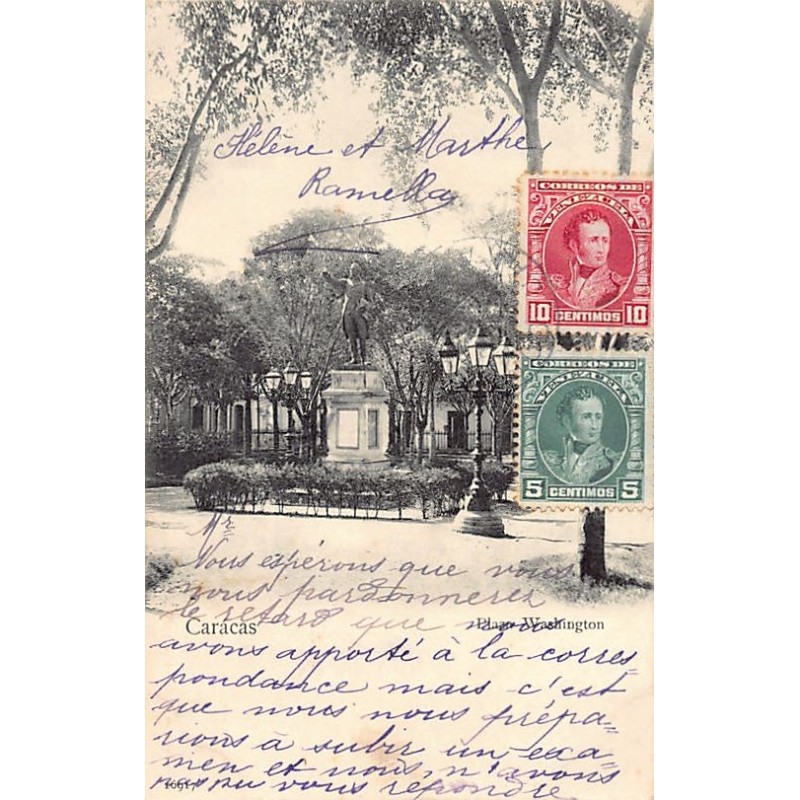 Hélène et Marthe
Ramella
CORREOS DE
VENEZUELA
10 CENTIMOS 10
CORREOS DE
VENEZUELA
5 CENTIMOS 5
Mr
Nous espérons que vous
nous pardonnerez
le retard que nous
Caracas
Plaza Washington
avons apporté à la corres=
pondance mais c'est
que nous nous prépa=
rions à subir un exa=
men et nous n'avons
pas pu vous répondre